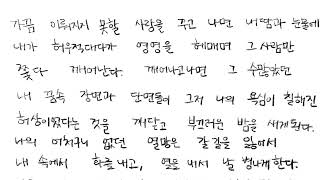 가끔 이뤄지지 못할 사랑을 주고 나면 내 땀과 눈물에
내가 허우적대다가 영영을 헤매며 그 사람만
쫓다 깨어난다. 깨어나고나면 그 수많았던
내 꿈속 장면과 단면들이 그저 나의 욕심이 칠해진
허상이었다는 것을 깨닫고 부끄러운 밤을 새게된다.
나의 어처구니 없던 열망은 갈 길을 잃눈에서
내 속에서 화를 내고, 열을 내서 날 병나게한다.